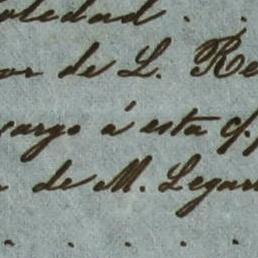 oledad . .
or de L. Re
cargo á esta c/.
de M. Legar
. . . . .